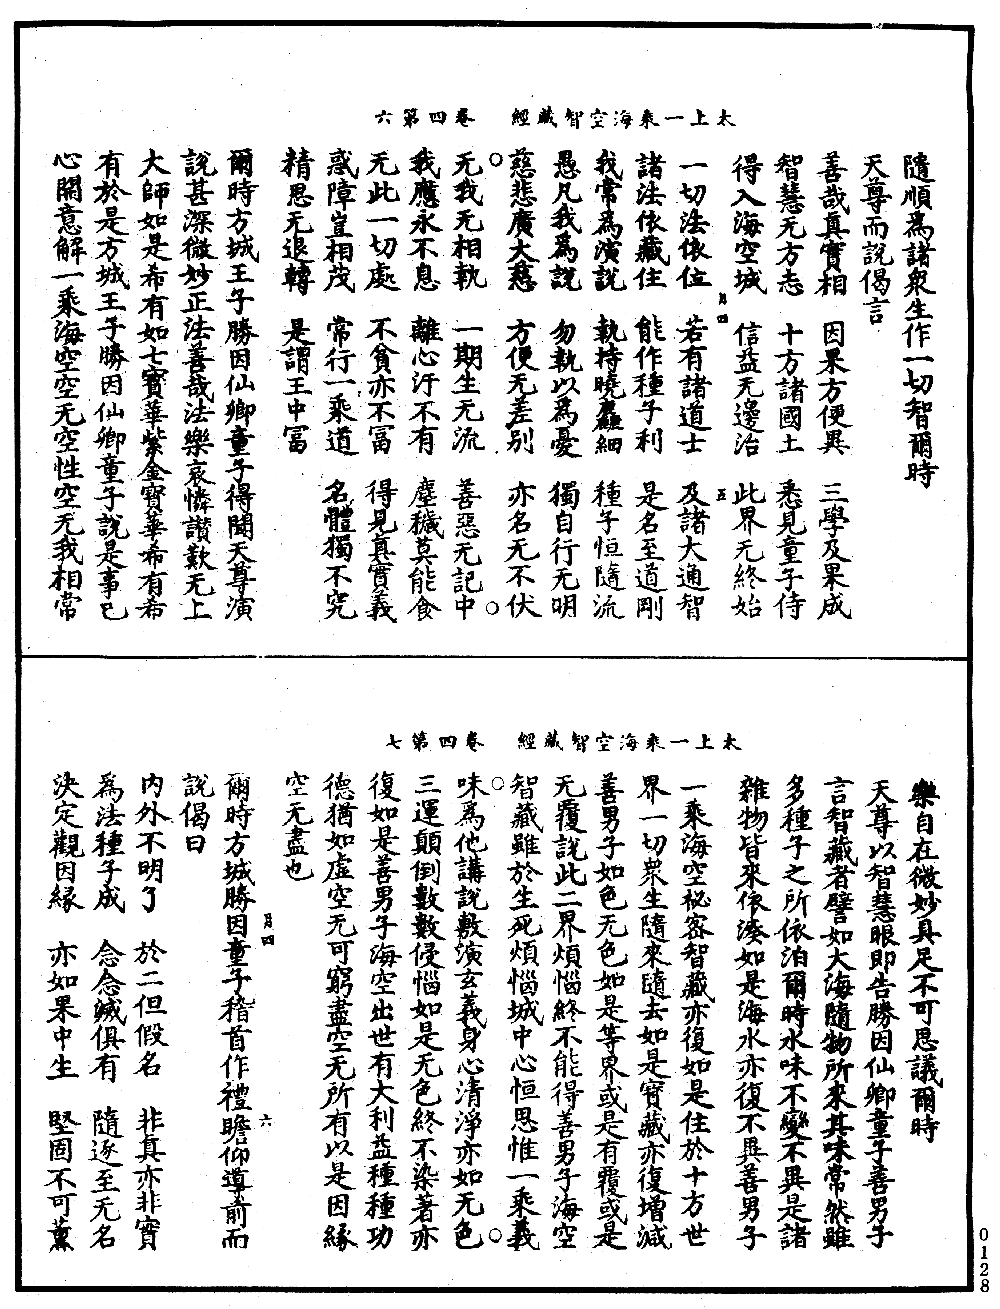 太上一乘海空智藏經 卷四第六
隨順爲諸衆生作一切智爾時
天尊而說偈言
善哉真實相 因果方便異 三學及果成
智慧无方志 十方諸國土 悉見童子侍
得入海空城 信益无邊治 此界无終始
月四 五
一切法依位 若有諸道士 及諸大通智
諸法依藏住 能作種子利 是名至道剛
我常爲演說 執持曉麤細 種子恒隨流
愚凡我爲說 勿執以爲憂 獨自行无明
慈悲廣大慈 方便无差別 亦名无不伏
无我无相執 一期生无流 善惡无記中
我應永不息 離心汙不有 塵穢莫能食
无此一切處 不貪亦不富 得見真實義
惑障豈相茂 常行一乘道 名體獨不究
精思无退轉 是謂王中富
爾時方城王子勝因仙卿童子得聞天尊演
說甚深微妙正法善哉法樂哀憐讃歎无上
大師如是希有如七寶華紫金寶華希有希
有於是方城王子勝因仙卿童子說是事已
心開意解一乘海空空无空性空无我相常
太上一乘海空智藏經 卷四第七
樂自在微妙具足不可思議爾時
天尊以智慧眼即告勝因仙卿童子善男子
言智藏者譬如大海隨物所來其味常然雖
多種子之所依泊爾時水味不變不異是諸
雜物皆來依湊如是海水亦復不異善男子
一乘海空祕密智藏亦復如是住於十方世
界一切衆生隨來隨去如是寶藏亦復增減
善男子如色无色如是等界或是有覆或是
无覆說此二界煩惱終不能得善男子海空
智藏雖於生死煩惱城中心恒思惟一乘義
味爲他講說敷演玄義身心清淨亦如无色
三運顛倒數數侵惱如是无色終不染著亦
復如是善男子海空出世有大利益種種功
德猶如虛空无可窮盡空无所有以是因緣
空无盡也
月四 六
爾時方城勝因童子稽首作禮瞻仰尊前而
說偈曰
內外不明了 於二但假名 非真亦非實
爲法種子成 念念滅俱有 隨逐至无名
決定觀因緣 亦如果中生 堅固不可薰
0128